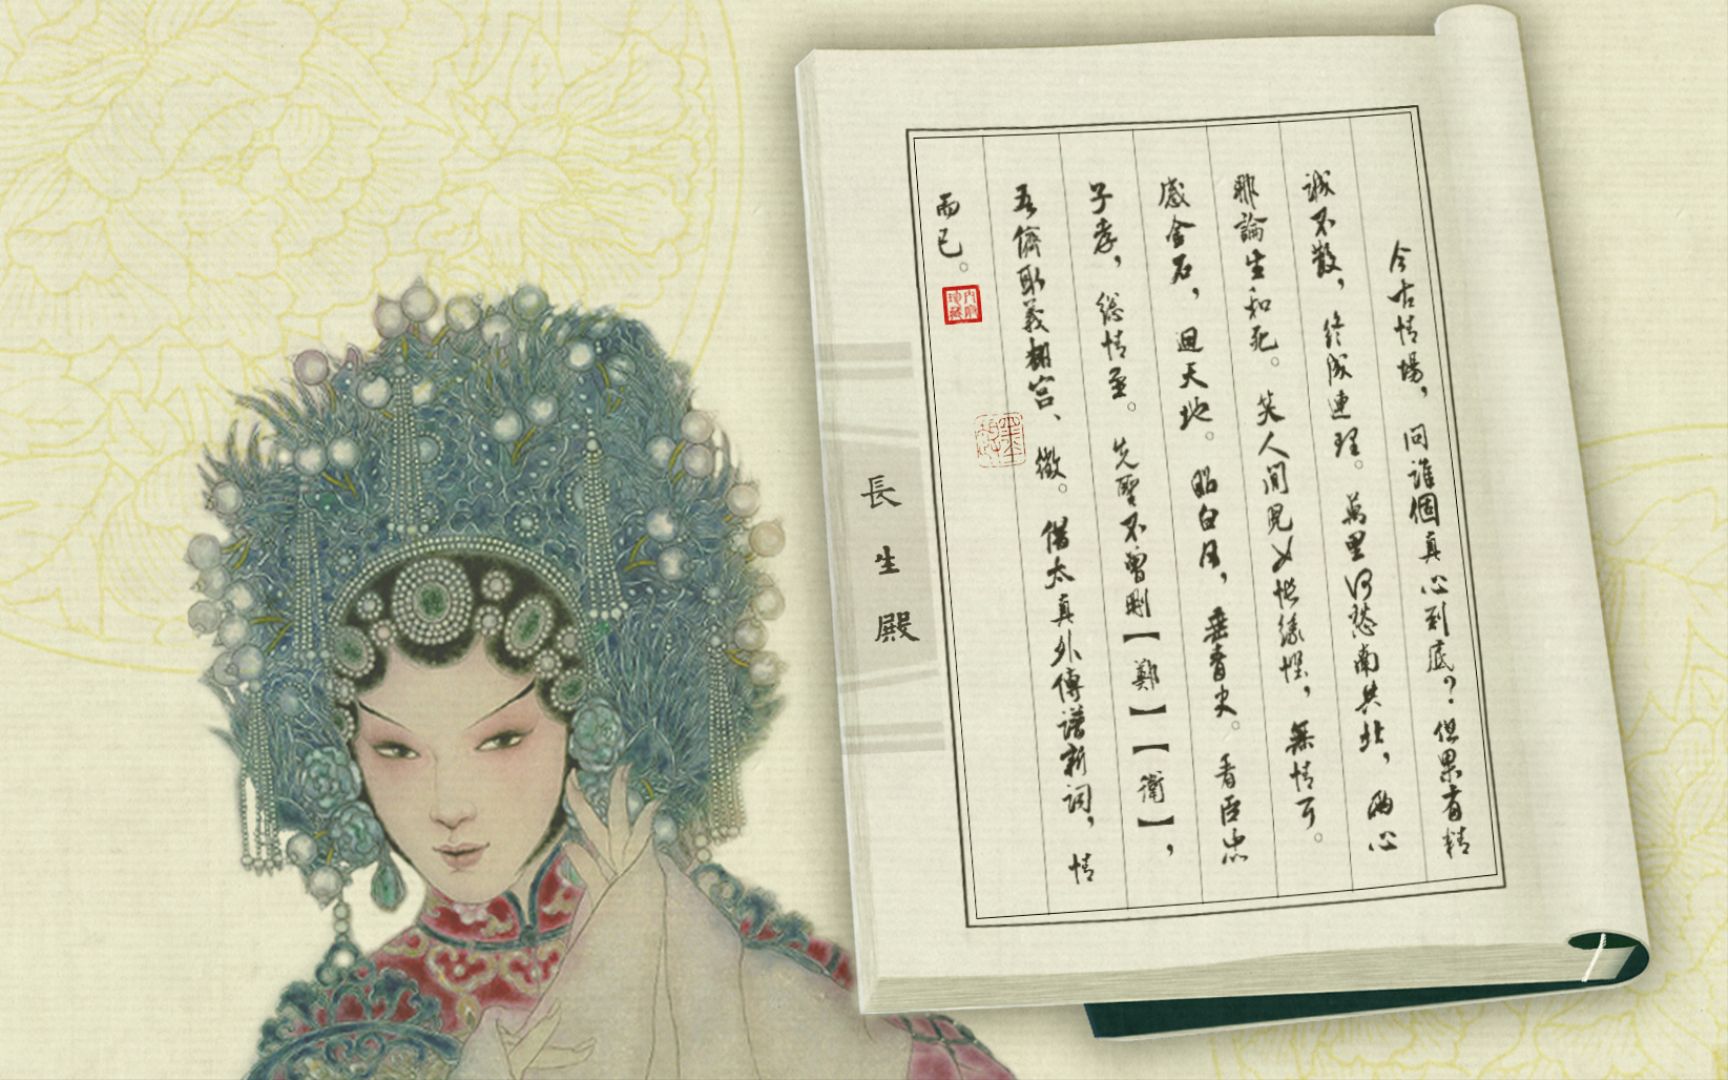 今古情場，問誰個真心到底？但果有精
誠不散，終成連理。萬里何愁南共北，兩心
那論生和死。笑人間兒女悵緣慳，無情耳。
感金石，迴天地。昭白日，垂青史。看臣忠
子孝，總情至。先聖不曾刪【鄭】【衛】，
吾儕取義翻宮、徵。借太真外傳譜新詞，情
而已。
長生殿